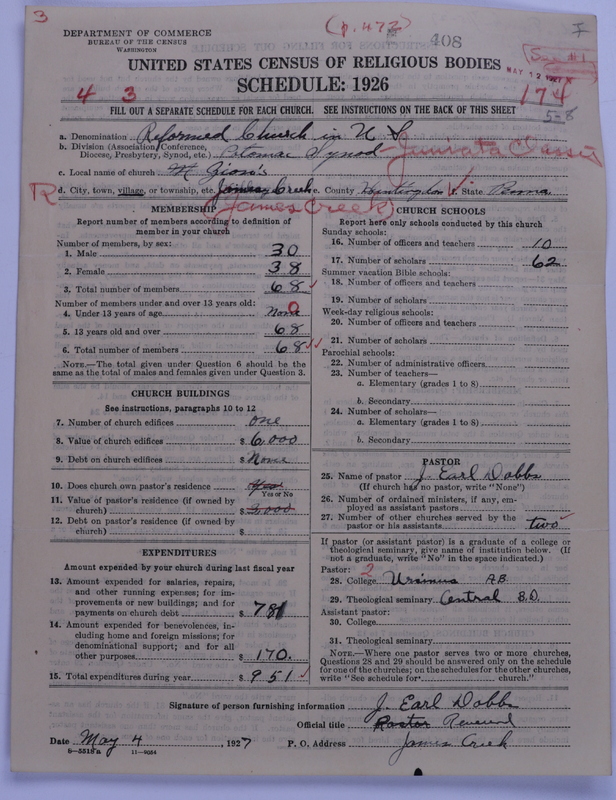 3
(p. 472)
I
DEPARTMENT OF COMMERCE
BUREAU OF THE CENSUS
WASHINGTON
408
UNITED STATES CENSUS OF RELIGIOUS BODIES
SCHEDULE: 1926
MAY 12 1927
4 3
174
5-8
FILL OUT A SEPARATE SCHEDULE FOR EACH CHURCH. SEE INSTRUCTIONS ON THE BACK OF THIS SHEET
a. Denomination Reformed Church in U S
b. Division (Association, Conference, Diocese, Presbytery, Synod, etc.) Potomac Synod - Juniata Classis
c. Local name of church Mt Zion's
d. City, town, village, or township, etc. James Creek e. County Huntingdon f. State Penna
R
(James Creek)
MEMBERSHIP
Report number of members according to definition of
member in your church
Number of members, by sex:
1. Male 30
2. Female 38
3. Total number of members 68
Number of members under and over 13 years old:
4. Under 13 years of age None 0
5. 13 years old and over 68
6. Total number of members 68
NOTE.—The total given under Question 6 should be
the same as the total of males and females given under Question 3.
CHURCH BUILDINGS
See instructions, paragraphs 10 to 12
7. Number of church edifices one
8. Value of church edifices $ 6,000
9. Debt on church edifices $ None
10. Does church own pastor's residence Yes
Yes or No
11. Value of pastor's residence (if owned by
church) $ 3,000
12. Debt on pastor's residence (if owned by
church) $
EXPENDITURES
Amount expended by your church during last fiscal year
13. Amount expended for salaries, repairs,
and other running expenses; for im-
provements or new buildings; and for
payments on church debt $ 781
14. Amount expended for benevolences, in-
cluding home and foreign missions; for
denominational support; and for all
other purposes $ 170.
15. Total expenditures during year $ 951
CHURCH SCHOOLS
Report here only schools conducted by this church
Sunday schools:
16. Number of officers and teachers 10
17. Number of scholars 62
Summer vacation Bible schools:
18. Number of officers and teachers
19. Number of scholars
Week-day religious schools:
20. Number of officers and teachers
21. Number of scholars
Parochial schools:
22. Number of administrative officers
23. Number of teachers—
a. Elementary (grades 1 to 8)
b. Secondary
24. Number of scholars—
a. Elementary (grades 1 to 8)
b. Secondary
PASTOR
25. Name of pastor J. Earl Dobbs
(If church has no pastor, write "None")
26. Number of ordained ministers, if any, em-
ployed as assistant pastors
27. Number of other churches served by the
pastor or his assistants two
If pastor (or assistant pastor) is a graduate of a college or
theological seminary, give name of institution below. (If
not a graduate, write "No" in the space indicated.)
Pastor: 2
28. College Ursinus A.B.
29. Theological seminary Central B.D.
Assistant pastor:
30. College
31. Theological seminary
NOTE.—Where one pastor serves two or more churches,
Questions 28 and 29 should be answered only on the schedule
for one of the churches; on the schedules for the other churches,
write "See schedule for church."
Signature of person furnishing information J. Earl Dobbs
Official title Pastor Reverend
Date May 4, 1927 P. O. Address James Creek
8—5518a 11—9054